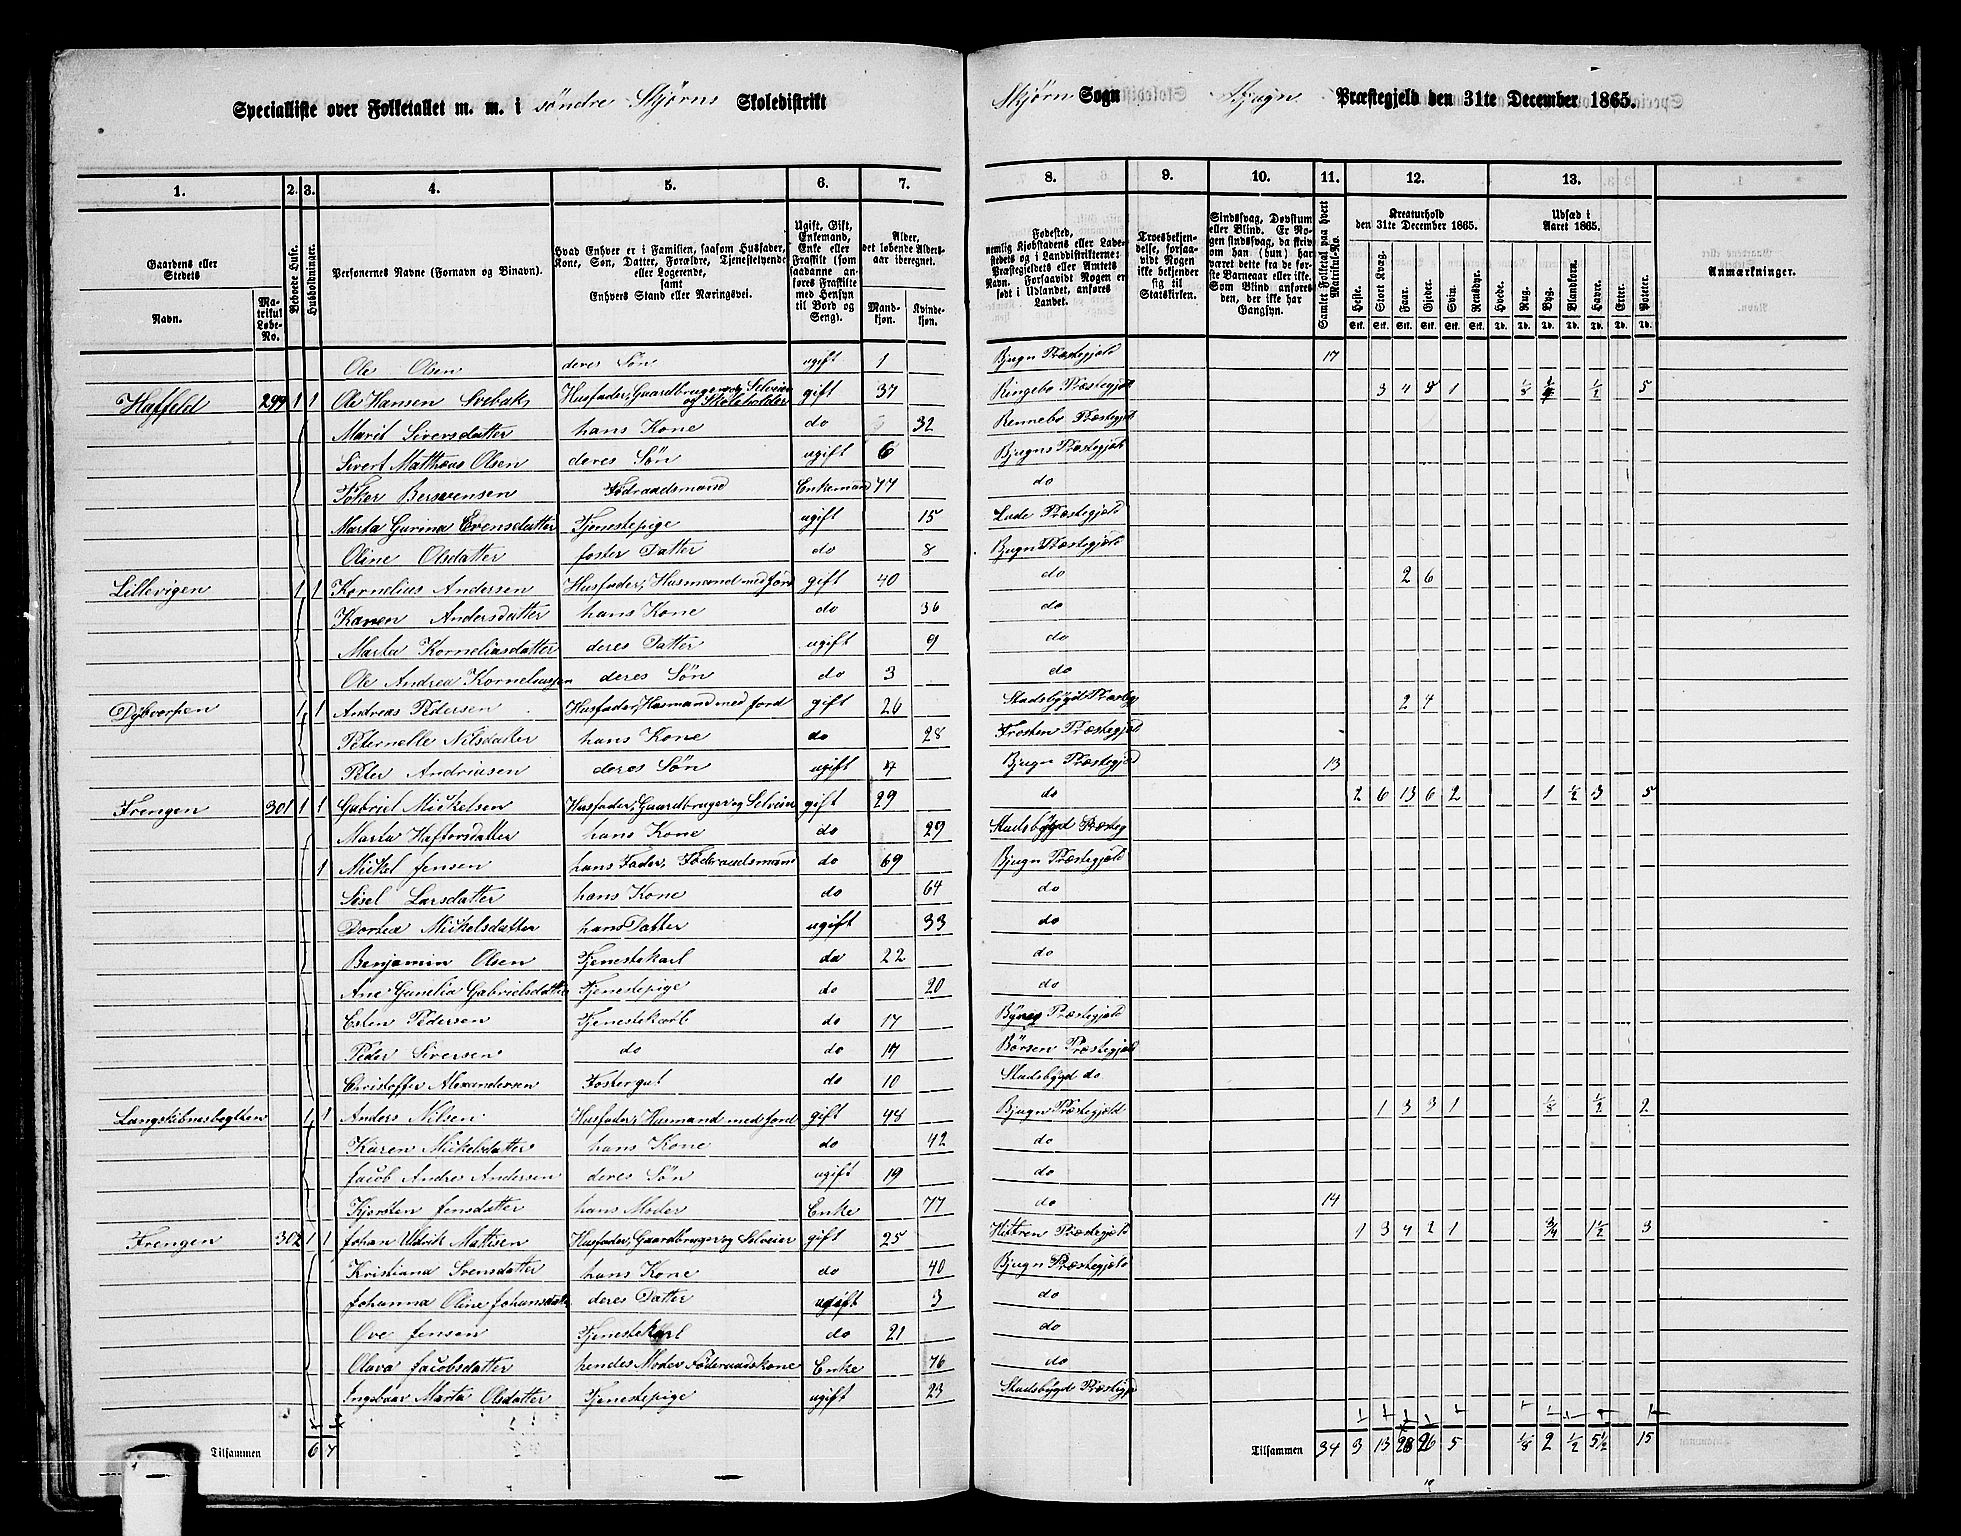 Specialliste over Folketallet m. m. i søndre Skjørns Skoledistrikt
Skjørn Sogn Bjugn Præstegjeld den 31te December 1865.
1. 2. 3. 4. 5. 6. 7.
8. 9. 10. 11. 12. 13. 1.
Gaardens eller Stedets
Navn.
Matrikul Løbe-No.
Beboede Huse.
Husholdninger.
Personernes Navne (Fornavn og Binavn).
Hvad Enhver er i Familien, saasom Husfader, Kone, Søn, Datter, Forældre, Tjenestetyende eller Logerende, samt Enhvers Stand eller Næringsvei.
Ugift, Gift, Enkemand, Enke eller Fraskilt (som saadanne anføres Fraskilte med Hensyn til Bord og Seng).
Alder, det løbende Aldersaar iberegnet.
Mandkjøn. Kvindekjøn.
Fødested, nemlig Kjøbstadens eller Ladestedets og i Landdistrikterne: Præstegjeldets eller Amtets Navn. Forsaavidt Nogen er født i Udlandet, anføres Landet.
Troesbekjendelse, forsaavidt Nogen ikke bekjender sig til Statskirken.
Sindssvag, Døvstum eller Blind. Er Nogen sindssvag, da skrives om han (hun) har været dette fra de første Barneaar eller ikke. Som Blind anføres den, der ikke har Gangsyn.
Samlet Folketal paa hvert Matrikul-No.
Kreaturhold den 31te December 1865.
Heste. Stort Kvæg. Faar. Gjeder. Svin. Rensdyr.
Udsæd i Aaret 1865.
Hvede. Rug. Byg. Blandkorn. Havre. Erter. Poteter.
Anmærkninger.
Ole Olsen deres Søn ugift 1 Bjugn Præstegjeld 17
Haffeld 299 1 1 Ole Hansen Svebak Husfader, Gaardbruger og Selveier og Skoleholder gift 37 Ringebo Præstegjeld 3 4 8 1 1/8 1/4 1/2 5
Marit Siversdatter hans Kone do 32 Rennebo Præstegjeld
Sivert Mathæus Olsen deres Søn ugift 6 Bjugns Præstegjeld
Toker Bersvensen Føderaadsmand Enkemand 77 do
Marta Gurina Evensdatter Tjenestepige ugift 15 Lade Præstegjeld
Oline Olsdatter foster Datter do 8 Bjugn Præstegjeld
Lillevigen 1 1 Kornelius Andersen Husfader, Husmand med Jord gift 40 do 2 6
Karen Andersdatter hans Kone do 36 do
Marta Korneliasdatter deres Datter ugift 9 do
Ole Andrea Korneliussen deres Søn do 3 do
Dybvorpen 1 1 Andreas Pedersen Husfader, Husmand med Jord gift 26 Stadsbygd Præstegj 2 4
Peternelle Nilsdatter hans Kone do 28 Frosten Præstegjeld
Peter Andriasen deres Søn ugift 4 Bjugn Præstegjeld 13
Frengen 301 1 1 Gabriel Mickelsen Husfader, Gaardbruger og Selveier gift 29 do 2 6 13 6 2 1 1/2 3 5
Marta Haftorsdatter hans Kone do 29 Stadsbygd Præsteg
1 Mickel Jensen hans Fader, Føderaadsmand do 69 Bjugn Præstegjeld
Sisel Larsdatter hans Kone do 64 do
Dortea Mickelsdatter hans Datter ugift 33 do
Benjamin Olsen Tjenestekarl do 22 do
Ane Gunelia Gabrielsdatter Tjenestepige do 20 do
Esten Pedersen Tjenestekarl do 17 Byneg Præstegjeld
Peder Siversen do do 17 Børsen Præstegjeld
Christoffer Alexandersen Fostergut do 10 Stadsbygd do
Langskibnesbogtten 1 1 Anders Nilsen Husfader, Husmand med Jord gift 43 Bjugn Præstegjeld 1 3 3 1 1/8 1/2 2
Karen Mickelsdatter hans Kone do 42 do
Jacob Andre Andersen deres Søn ugift 19 do
Kjersten Jensdatter hans Moder Enke 77 do 14
Frengen 302 1 1 Johan Udrik Mattisen Husfader, Gaardbruger og Selveier gift 25 Hittren Præstegjeld 1 3 4 2 1 3/4 1 1/2 3
Kristiana Svensdatter hans Kone do 40 Bjugn Præstegjeld
Johanna Oline Johansdatter deres Datter ugift 3 do
Ove Jensen Tjenestekarl do 21 do
Olava Jacobsdatter hendes Moder Føderaadskone Enke 76 do
Ingebaar Marta Olsdatter Tjenestepige ugift 23 Stadsbygd Præstegjd
Tilsammen 6 7
Tilsammen 34 3 13 28 26 5 1/8 2 1/2 5 1/2 15